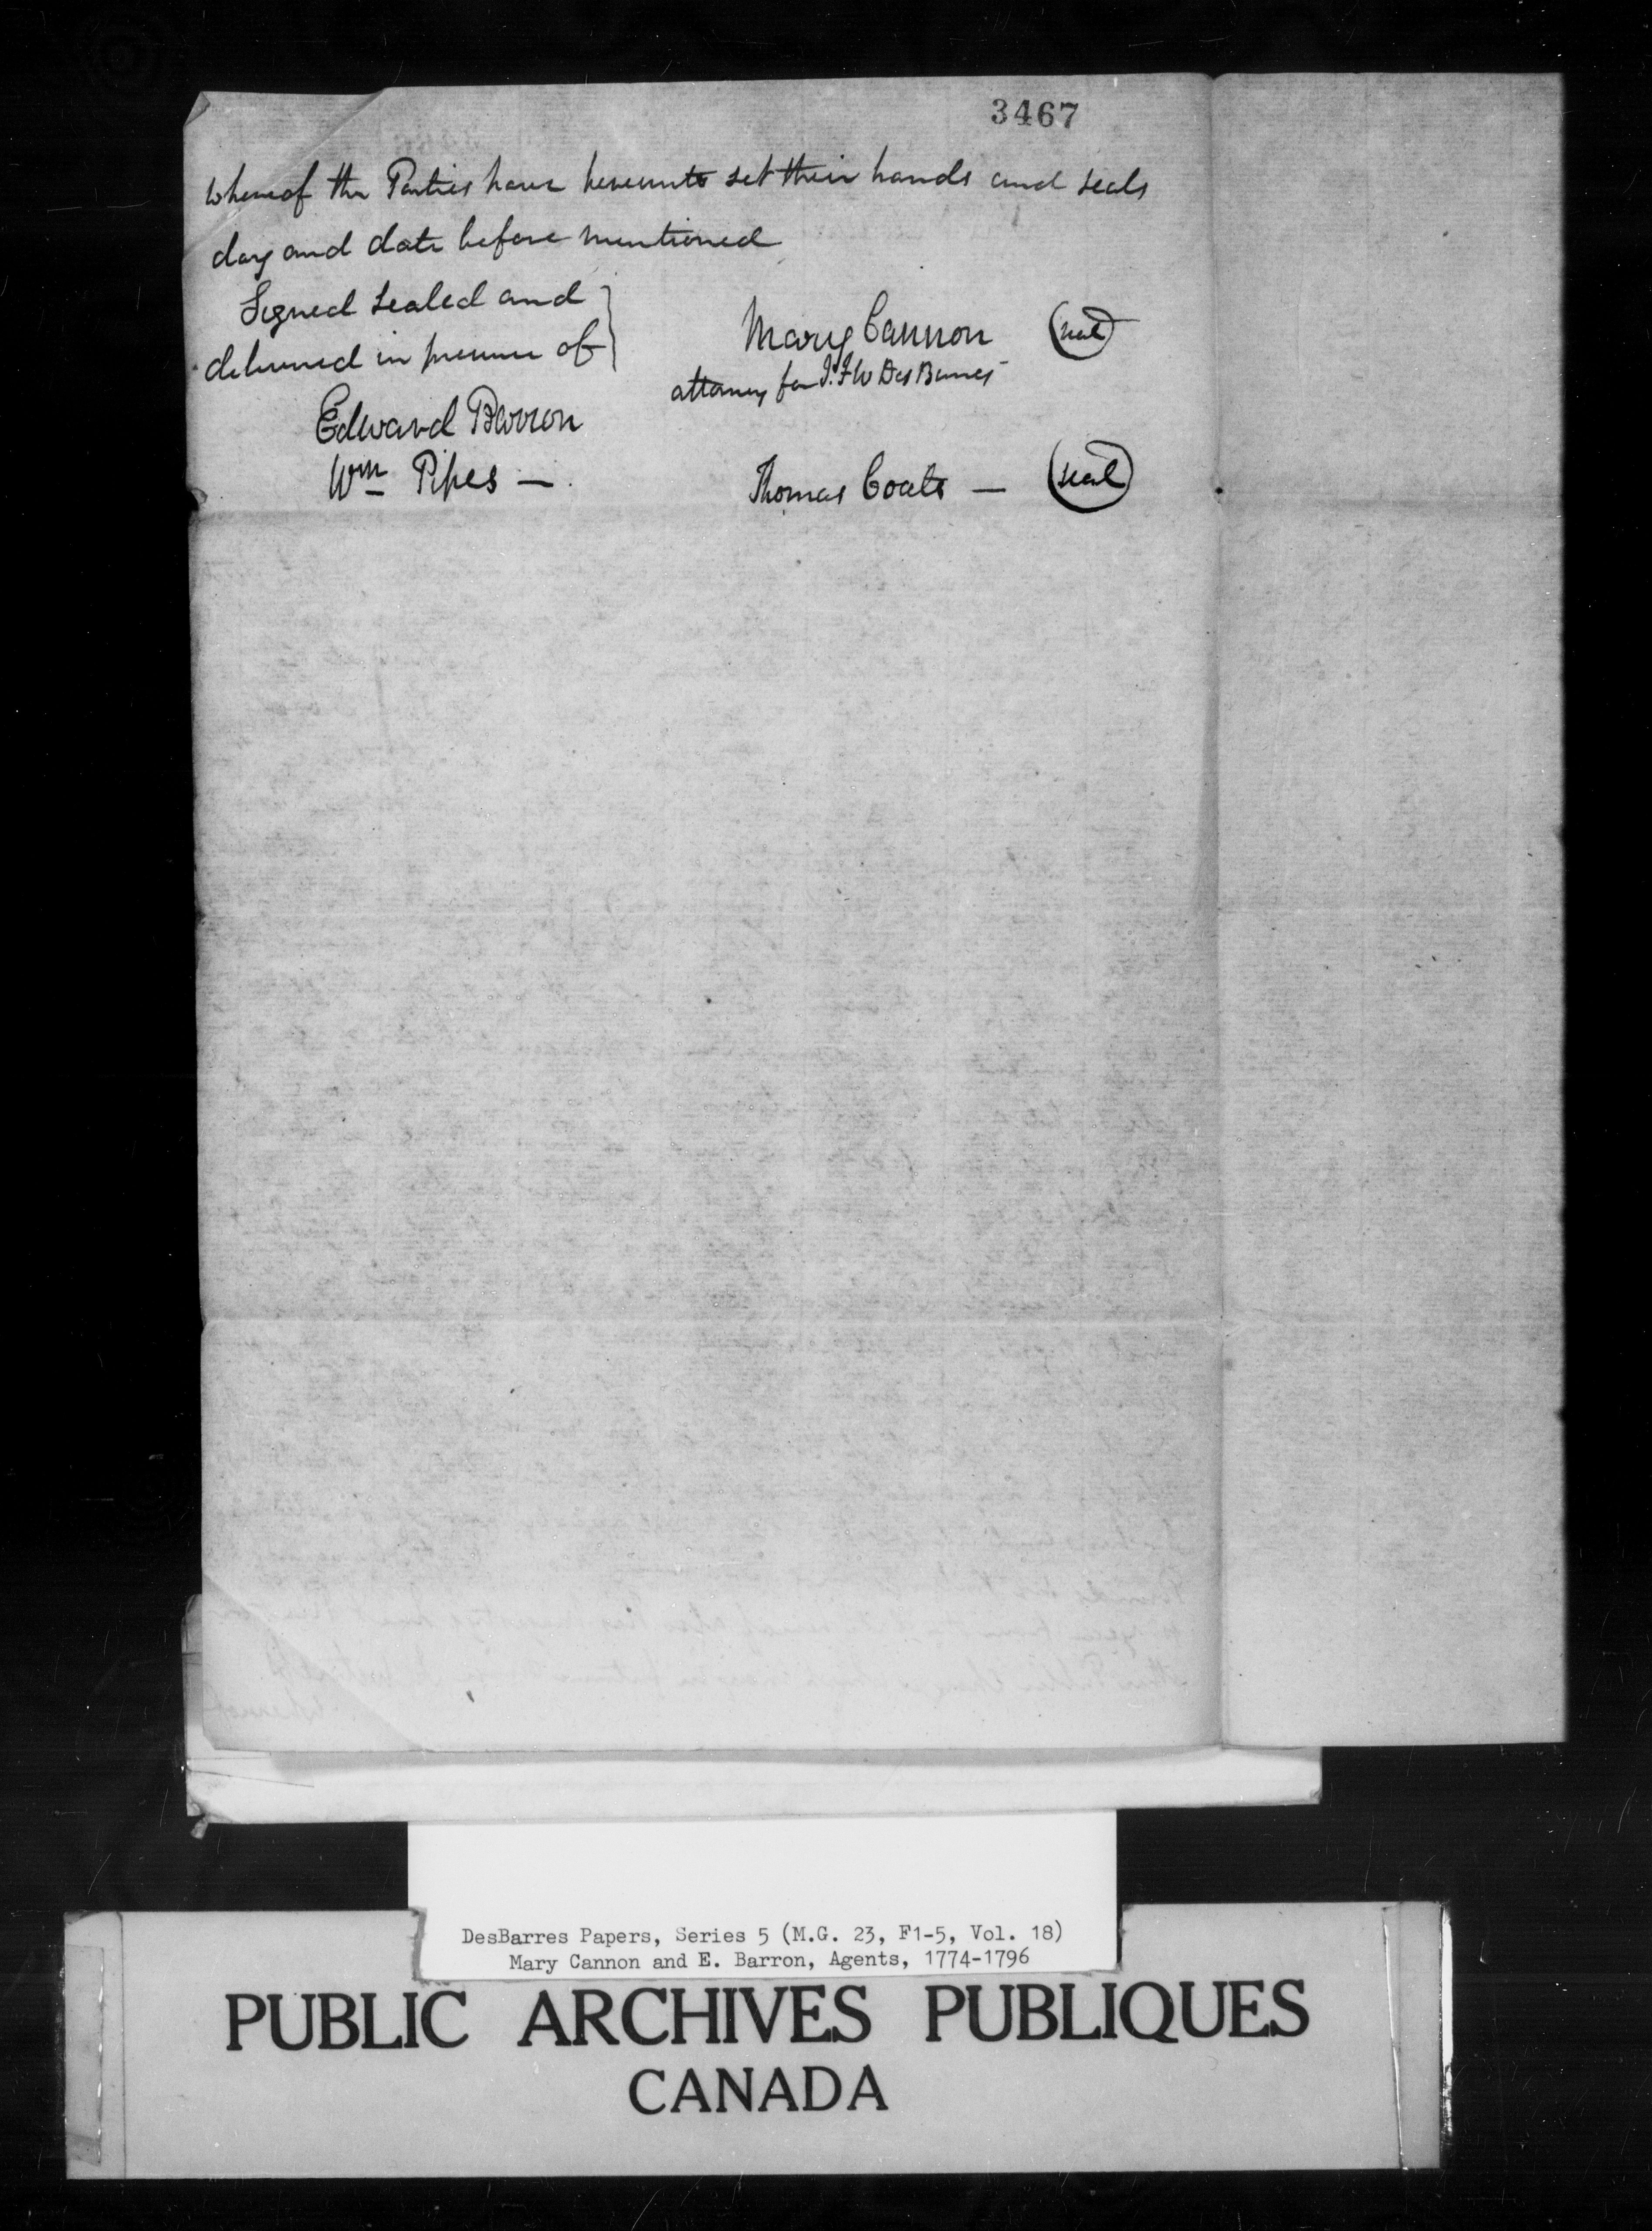 3467
whereof the Parties have hereunto set their hands and seals
day and date before mentioned
Signed sealed and
delivered in presence of
Mary Cannon (seal)
attorney for J. F W Des Barres
Edward Barron
Wm Pipes —
Thomas Coats — (seal)
DesBarres Papers, Series 5 (M.G. 23, F1-5, Vol. 18)
Mary Cannon and E. Barron, Agents, 1774-1796
PUBLIC ARCHIVES PUBLIQUES
CANADA